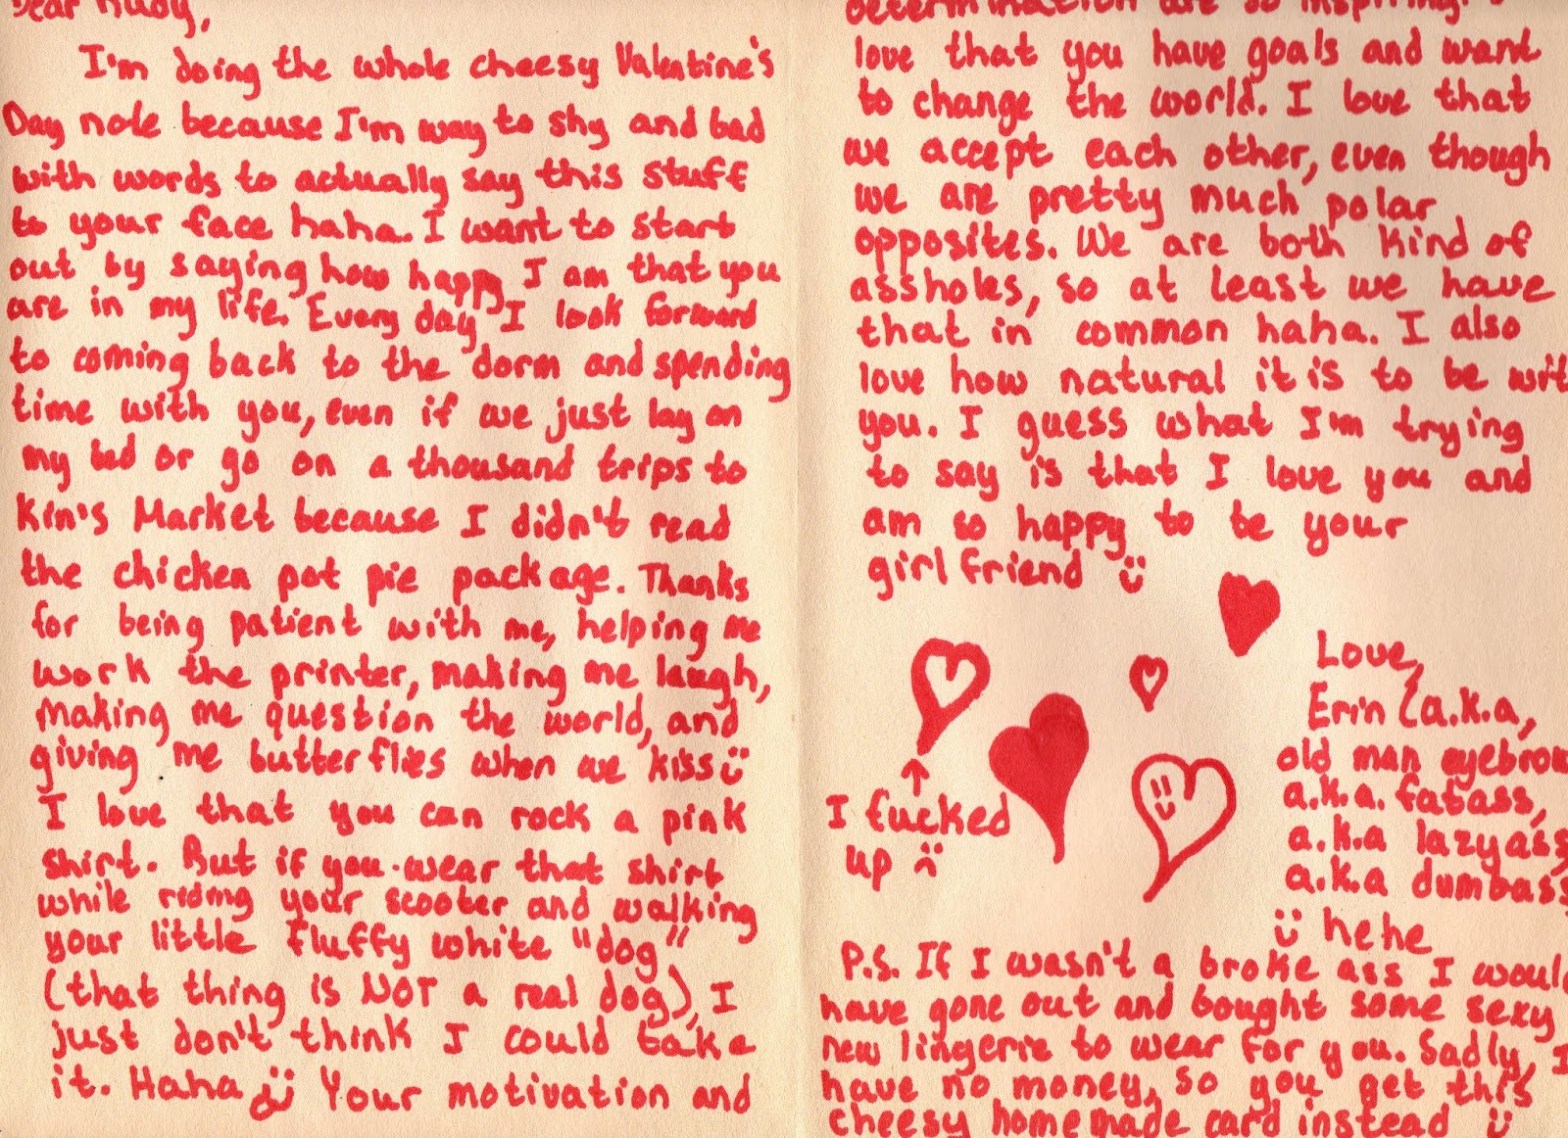 Dear Rudy,
I'm doing the whole cheesy Valentine's
Day note because I'm way to shy and bad
with words to actually say this stuff
to your face haha. I want to start
out by saying how happy I am that you
are in my life. Every day I look forward
to coming back to the dorm and spending
time with you, even if we just lay on
my bed or go on a thousand trips to
Kin's Market because I didn't read
the chicken pot pie package. Thanks
for being patient with me, helping me
work the printer, making me laugh,
making me question the world, and
giving me butterflies when we kiss
I love that you can rock a pink
shirt. But if you wear that shirt
while riding your scooter and walking
your little fluffy white "dog"
(that thing is NOT a real dog), I
just don't think I could take
it. Haha Your motivation and
determination are so inspiring. I
love that you have goals and want
to change the world. I love that
we accept each other, even though
we are pretty much polar
opposites. We are both kind of
assholes, so at least we have
that in common haha. I also
love how natural it is to be wit
you. I guess what I'm trying
to say is that I love you and
am so happy to be your
girlfriend
I fucked
up
Love,
Erin (a.k.a,
old man eyebrow
a.k.a. fatass,
a.k.a lazyass
a.k.a dumbass
hehe
P.S. If I wasn't a broke ass I woul
have gone out and bought some sexy
new lingerie to wear for you. Sadly, I
have no money, so you get this
cheesy homemade card instead